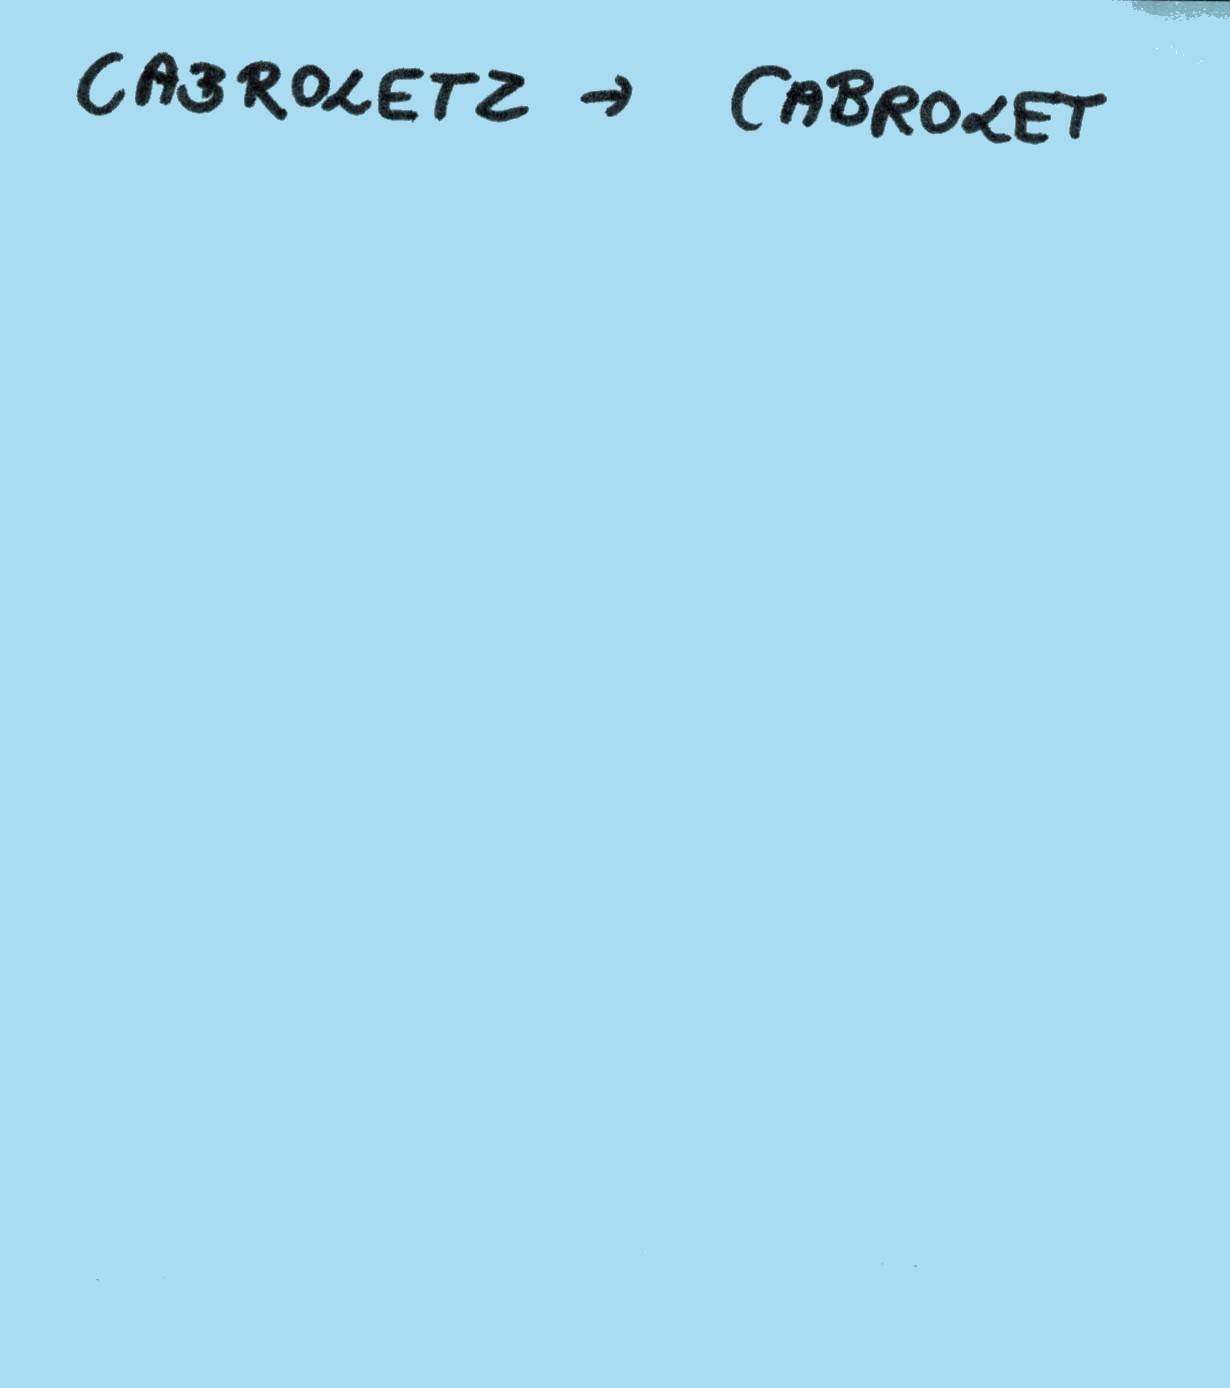 CABROLETZ → CABROLET